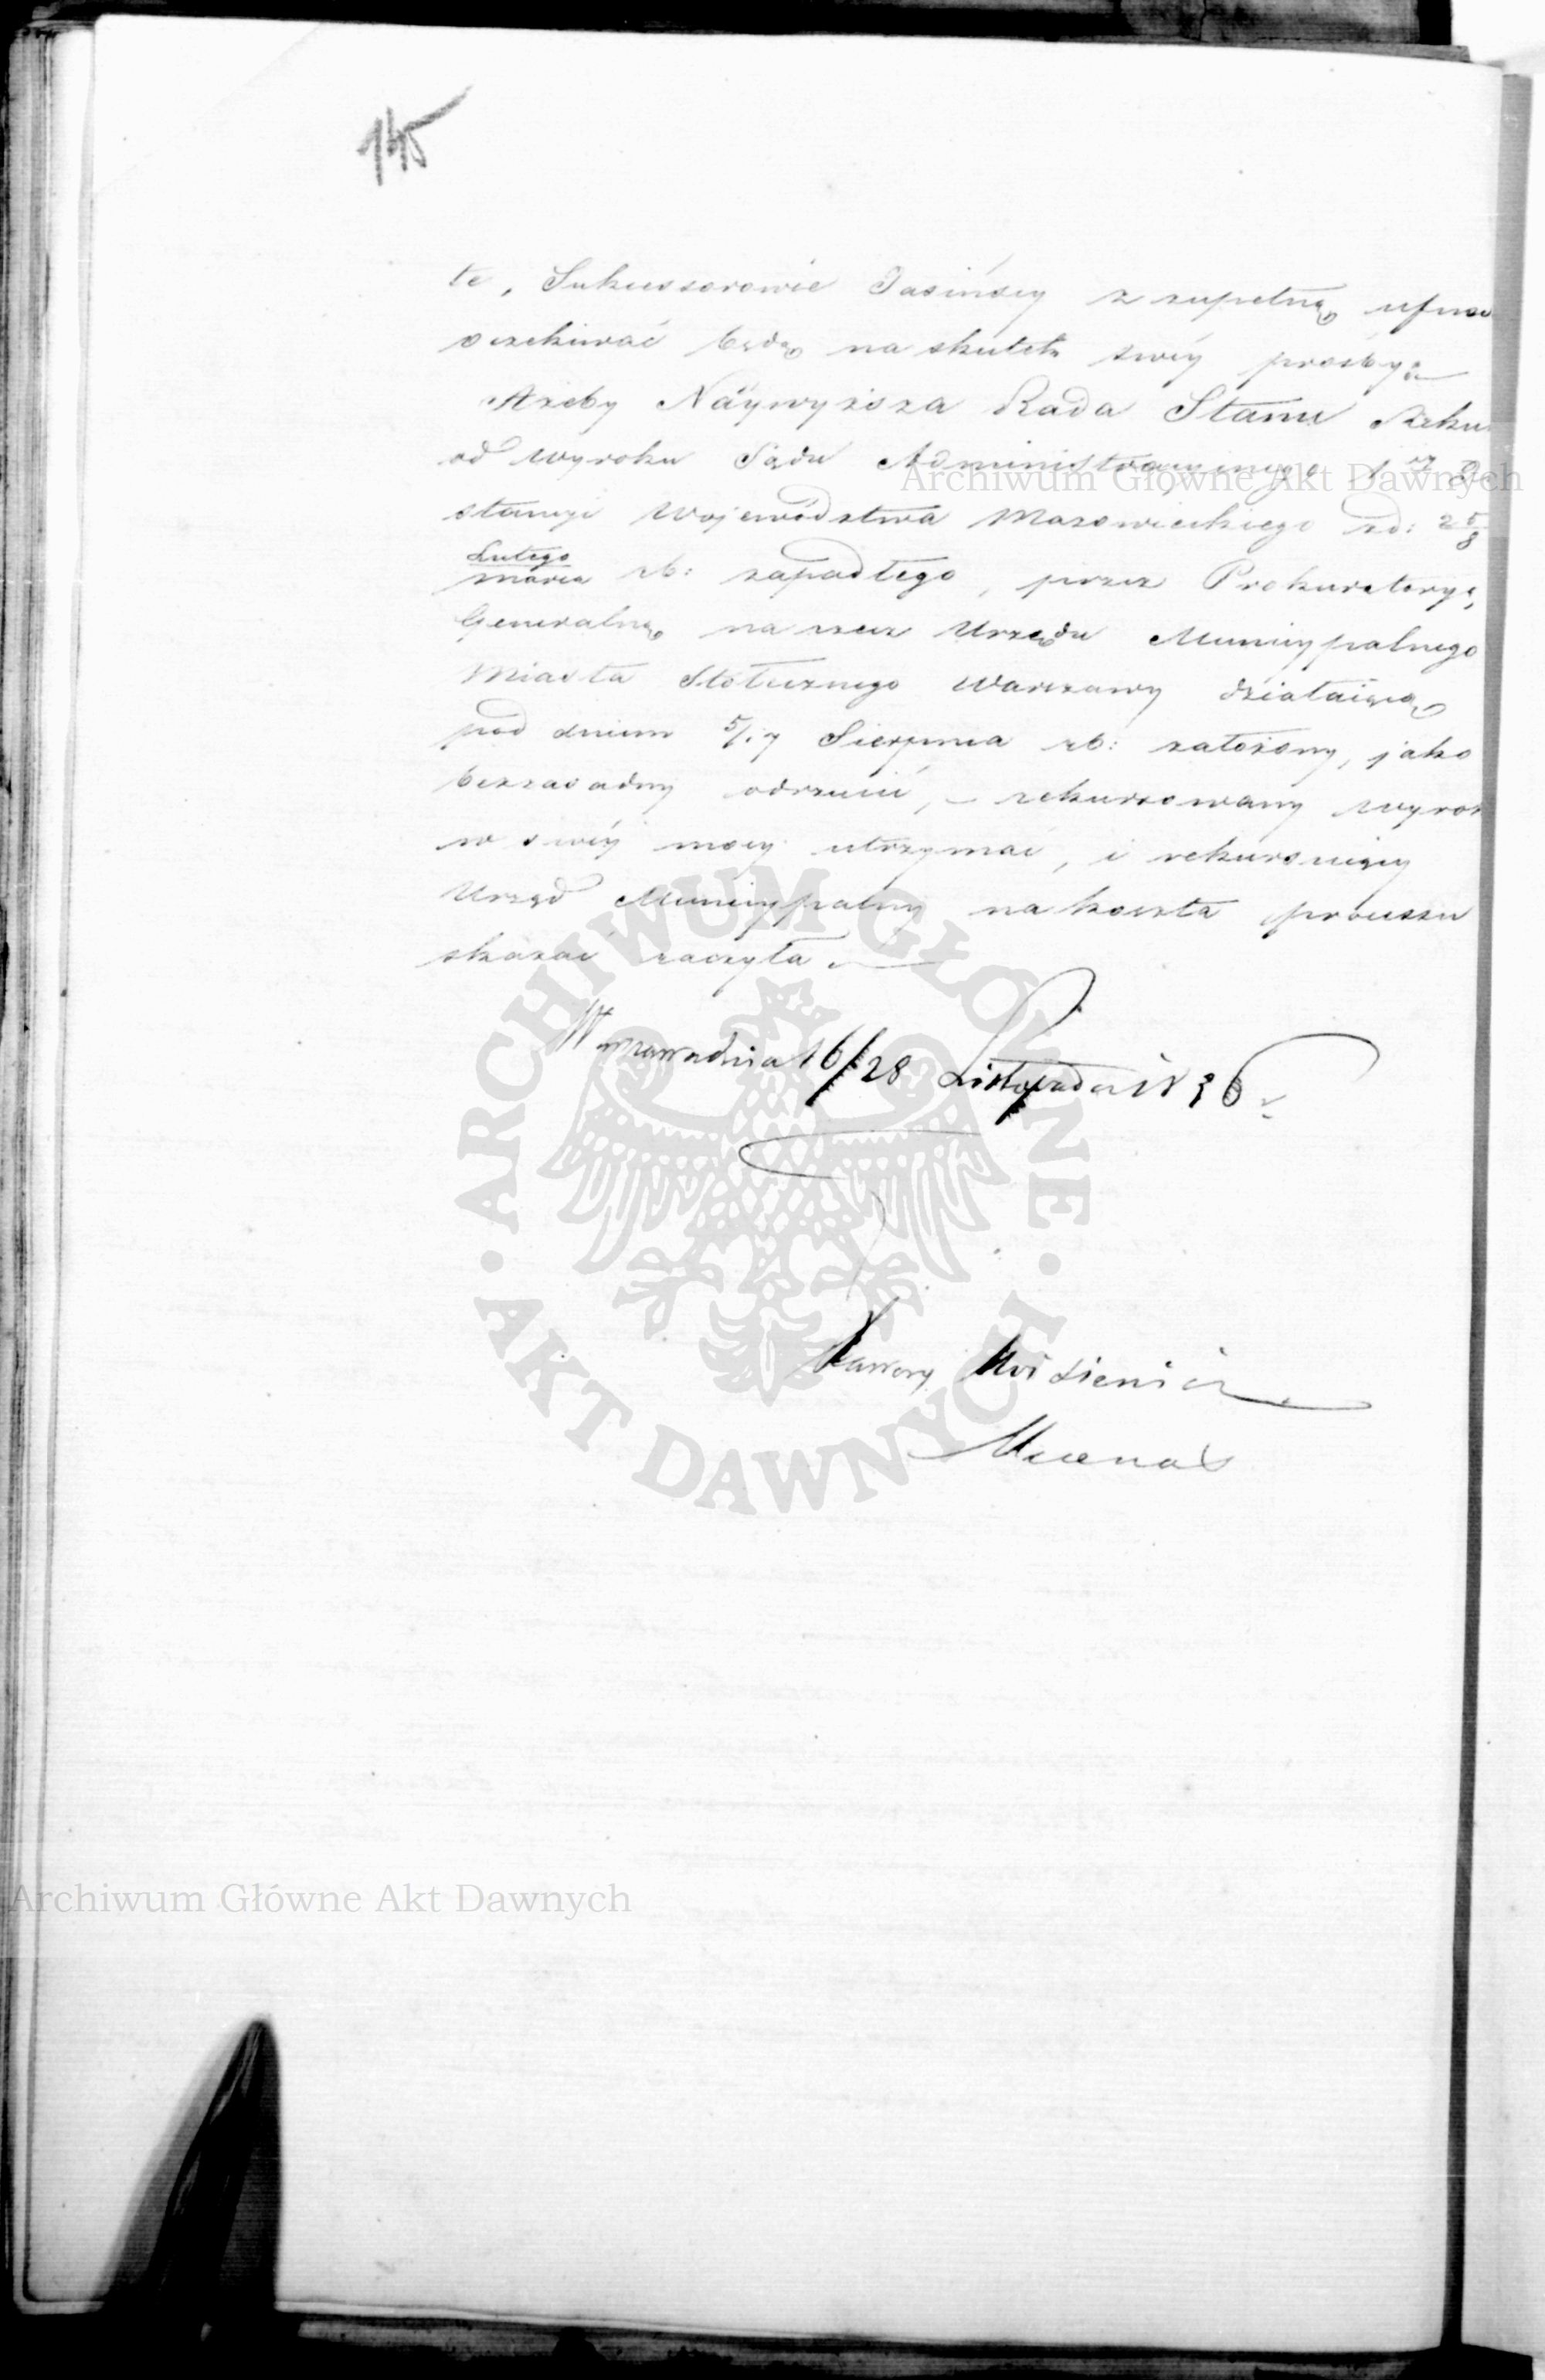 145
te, Sukcessorowie Jasińscy z zupełną ufno
oczekiwać będą na skutek swéy prośby:
Ażeby Naÿwyższa Rada Stanu Reku
od wyroku Sądu Administracyinego 1éy
Archiwum Główne Akt Dawnych
stancyi Województwa Mazowieckiego zd:
Lutego
Marca rb: zapadłego, przez Prokuratoryą
Generalną na rzecz Urzędu Municypalnego
Miasta Stołecznego Warszawy działaiącą
pod dniem 5/17 Sierpnia rb: założony, jako
bezzasadny odrzucić, – rekursowany wyrok
w swéy mocy utrzymać, i rekursuiący
Urząd Municypalny na koszta processu
skazać raczyła.
Warszawa dnia 16/28 Listopada 1836 r.
ARCHIWUM GŁÓWNE
• AKT DAWNYCH •
Mecenas
Archiwum Główne Akt Dawnych